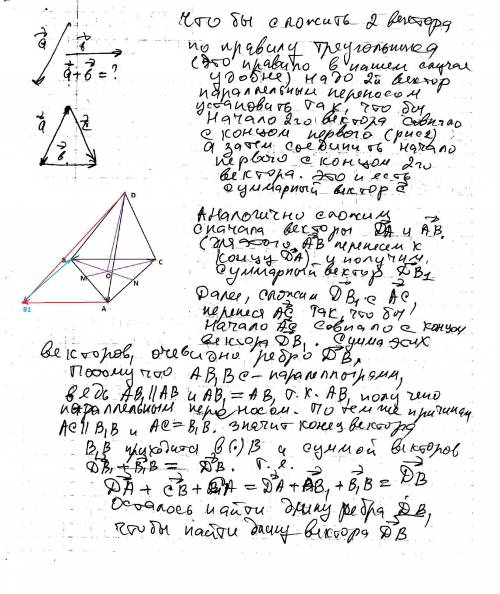 Что бы сложить 2 вектора
по правилу треугольника
(Это правило в нашем случае
удобнее) надо 2й вектор
параллельным переносом
установить так, что бы
Начало 2го вектора совпало
с концом первого (рис 2)
а затем соединить начало
первого с концом 2го
вектора. Это и есть
суммарный вектор c
a
b
a + b = ?
a
c
b
Аналогично сложим
сначала векторы DA и AB.
(для этого AB перенесем к
концу DA) и получим
суммарный вектор DB1
Далее, сложим DB1 с AC,
перенеся AC так, что бы
Начало AC совпало с концом
вектора DB1. Сумма этих
D
B
C
M
O
N
B1
A
векторов, очевидно ребро DB,
Потому что AB1BC - параллелограмм,
ведь AB1 || AB и AB1 = AB, т.к. AB1 получено
параллельным переносом. По тем же причинам
AC || B1B и AC = B1B. Значит конец вектора
B1B приходится в (.) B и суммой векторов
DB1 + B1B = DB. т.е.
DA + CB + = DA + AB1 + B1B = DB
Осталось найти длину ребра DB,
чтобы найти длину вектора DB